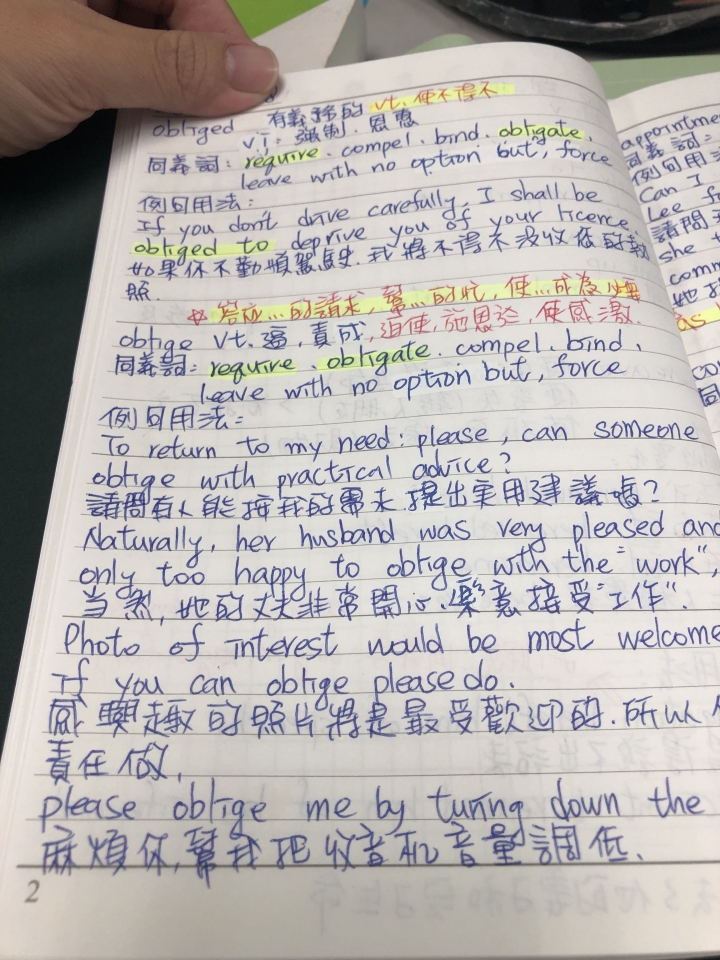 obliged 有義務的 vt. 使不得不
vi: 強制. 恩惠
同義詞: require. compel. bind. obligate.
leave with no option but, force
例句用法:
If you don't drive carefully, I shall be
obliged to deprive you of your licence
如果你不勤慎駕駛. 我將不得不沒收你的
照.
答应...的請求, 幫...的忙, 使...成為
oblige vt. 逼, 責成, 迫使, 施恩於, 使感激
同義詞: require, obligate. compel. bind,
leave with no option but, force
例句用法:
To return to my need: please, can someone
oblige with practical advice?
請問有人能按我的需求提出実用建議嗎?
Naturally, her husband was very pleased and
only too happy to oblige with the "work",
当然, 她的丈夫非常開心. 樂意接受"工作".
Photo of interest would be most welcome
if you can oblige please do.
感興趣的照片將是最受歡迎的. 所以
責任做,
please oblige me by turing down the
麻煩你, 幫我把收音机音量調低.
2
appointme
同義詞:
例句用法
Can I
Lee f
請問
she
comm
她
as
co
同